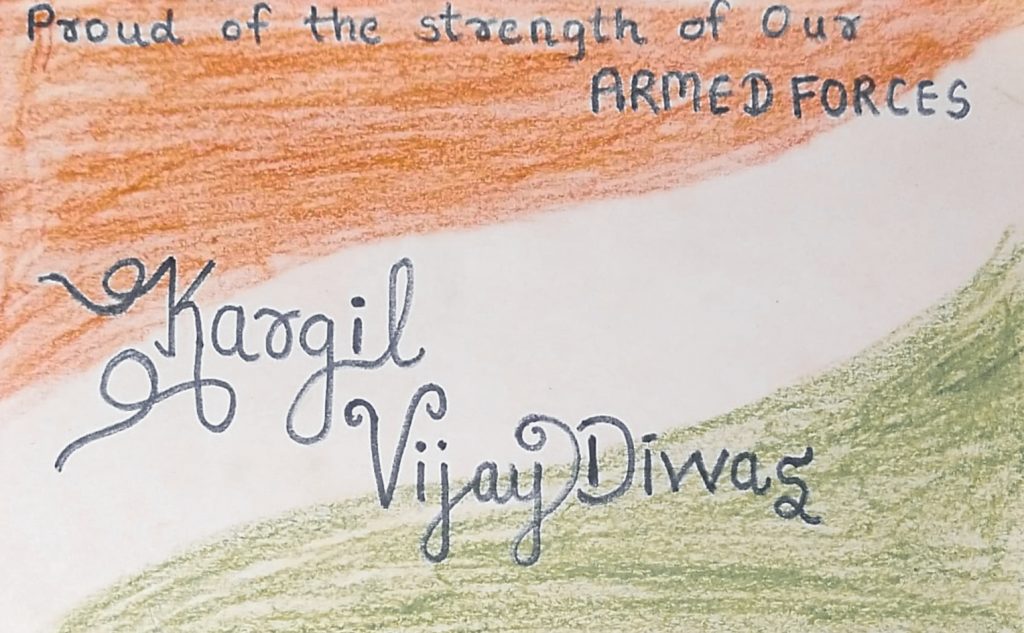 Proud of the strength of Our
ARMED FORCES
Kargil
Vijay Diwas